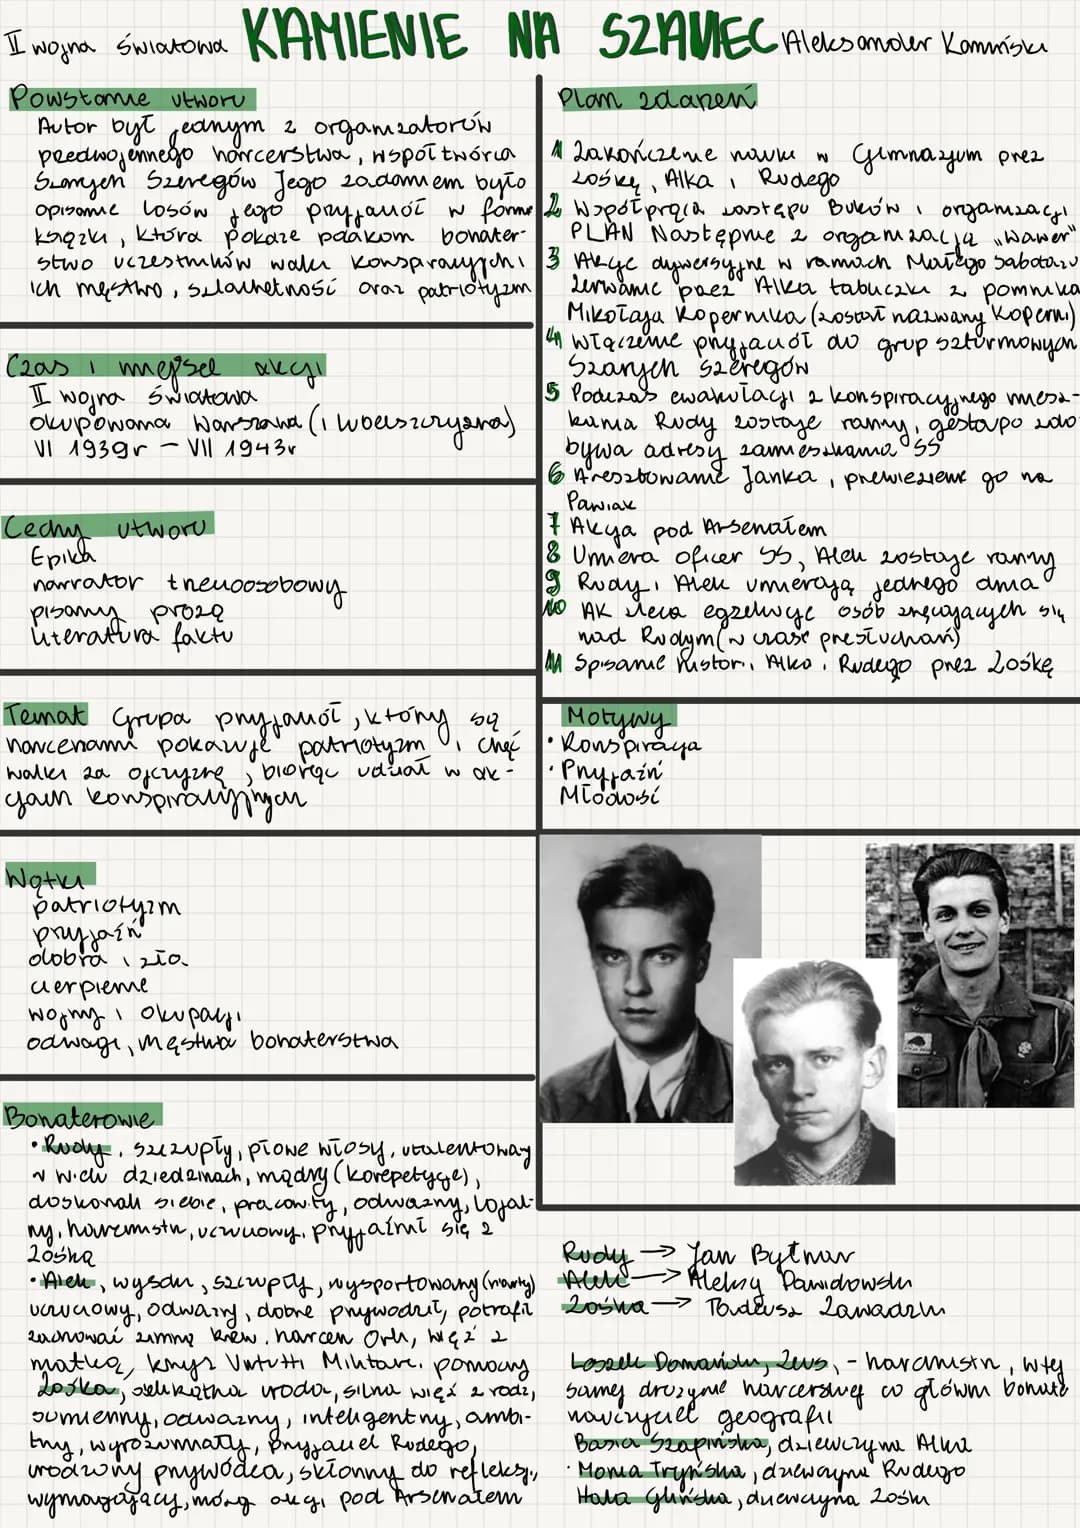 II wojna światowa KAMIENIE NA SZANIEC Aleksander Kamiński
Powstanie utworu
Autor był jednym z organizatorów
przedwojennego harcerstwa, współtwórca
Szarych Szeregów Jego zadaniem było
opisanie losów jego przyjaciół w formie
książki, która pokaże polakom bohater-
stwo uczestników walki konspiracyjnych i
ich męstwo, szlachetność oraz patriotyzm
Czas i miejsce akcji
II wojna światowa
okupowana Warszawa (i lubelszczyzna)
VI 1939r - VII 1943r
Cechy utworu
Epika
narrator trzecioosobowy
pisany prozą
literatura faktu
Temat Grupa przyjaciół, którzy są
harcerzami pokazuje patriotyzm i chęć
walki za ojczyznę, biorąc udział w ak-
cjach konspiracyjnych
Wątki
patriotyzm
przyjaźń
dobra i zła
cierpienie
wojny i okupacji
odwagi, męstwa bohaterstwa
Bohaterowie
• Rudy, szczupły, płowe włosy, utalentowany
w wielu dziedzinach, mądry (korepetycje),
doskonali siebie, pracowity, odważny, lojal-
ny, harcmistrz, uczuciowy, przyjaźnił się z
Zośką
• Alek, wysoki, szczupły, wysportowany (narty)
uczuciowy, odważny, dobrze przywodził, potrafił
zachować zimną krew, harcerz Orli, więź z
matką, krzyż Virtutti Militari, pomocny
Zośka, delikatna uroda, silna więź z rodz,
sumienny, odważny, inteligentny, ambi-
tny, wyrozumiały, przyjaciel Rudego,
urodzony przywódca, skłonny do refleksji,
wymagający, mózg akcji pod Arsenałem
Plan zdarzeń
1 Zakończenie nauki w Gimnazjum przez
Zośkę, Alka i Rudego
2 Współpraca zastępu Buków i organizacji
PLAN Następnie z organizacją "Wawer"
3 Akcje dywersyjne w ramach Małego Sabotażu
Zerwanie przez Alka tabliczki z pomnika
Mikołaja Kopernika (został nazwany Koperni)
4 Włączenie przyjaciół do grup szturmowych
Szarych Szeregów
5 Podczas ewakuacji z konspiracyjnego miesz-
kania Rudy zostaje ranny, gestapo zdo
bywa adresy zamieszkania SS
6 Aresztowanie Janka, przewiezienie go na
Pawiak
7 Akcja pod Arsenałem
8 Umiera oficer SS, Alek zostaje ranny
9 Rudy i Alek umierają jednego dnia
10 AK zleca egzekucję osób znęcających się
nad Rudym (w czasie przesłuchań)
11 Spisanie histori i Alka i Rudego przez Zośkę
Motywy
• Konspiracja
• Przyjaźń
Młodość
Rudy → Jan Bytnar
Alek → Aleksy Dawidowski
Zośka → Tadeusz Zawadzki
Leszek Domański, Zeus, - harcmistrz, w tej
samej drużynie harcerskiej co główni bohate
nauczyciel geografii
Basia Szapińska, dziewczyna Alka
• Monia Tryńska, dziewczyna Rudego
Hala Glińska, dziewczyna Zośki